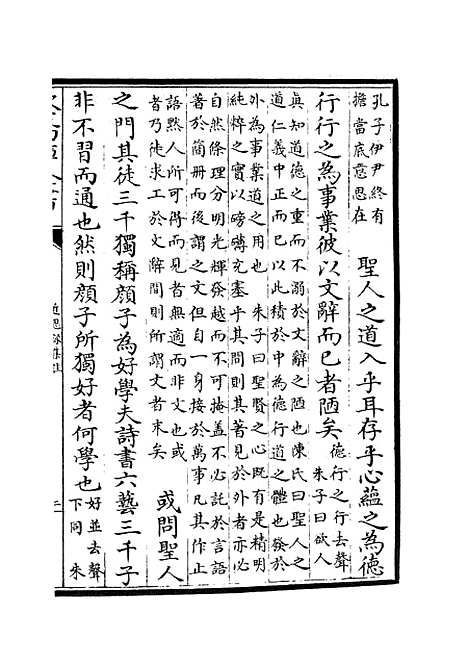 孔子伊尹終有
擔當底意思在
聖人之道入乎耳存乎心蘊之為德
行行之為事業彼以文辭而已者陋矣
德行之行去聲
朱子曰欲人
真知道德之重而不溺於文辭之陋也陳氏曰聖人之
道仁義中正而已以此積於中為德行道之體也發於
外為事業道之用也　朱子曰聖賢之心既有是精明
純粹之實以磅礴充塞乎其間則其著見於外者亦必
自然條理分明光輝發越而不可掩蓋不必託於言語
著於簡冊而後謂之文但自一身接於萬事凡其作止
語黙人所可得而見者無適而非文也或
者乃徒求工於文辭間則所謂文者末矣
或問聖人
之門其徒三千獨稱顔子為好學夫詩書六藝三千子
非不習而通也然則顔子所獨好者何學也
好並去聲
下同　朱
近思録集註